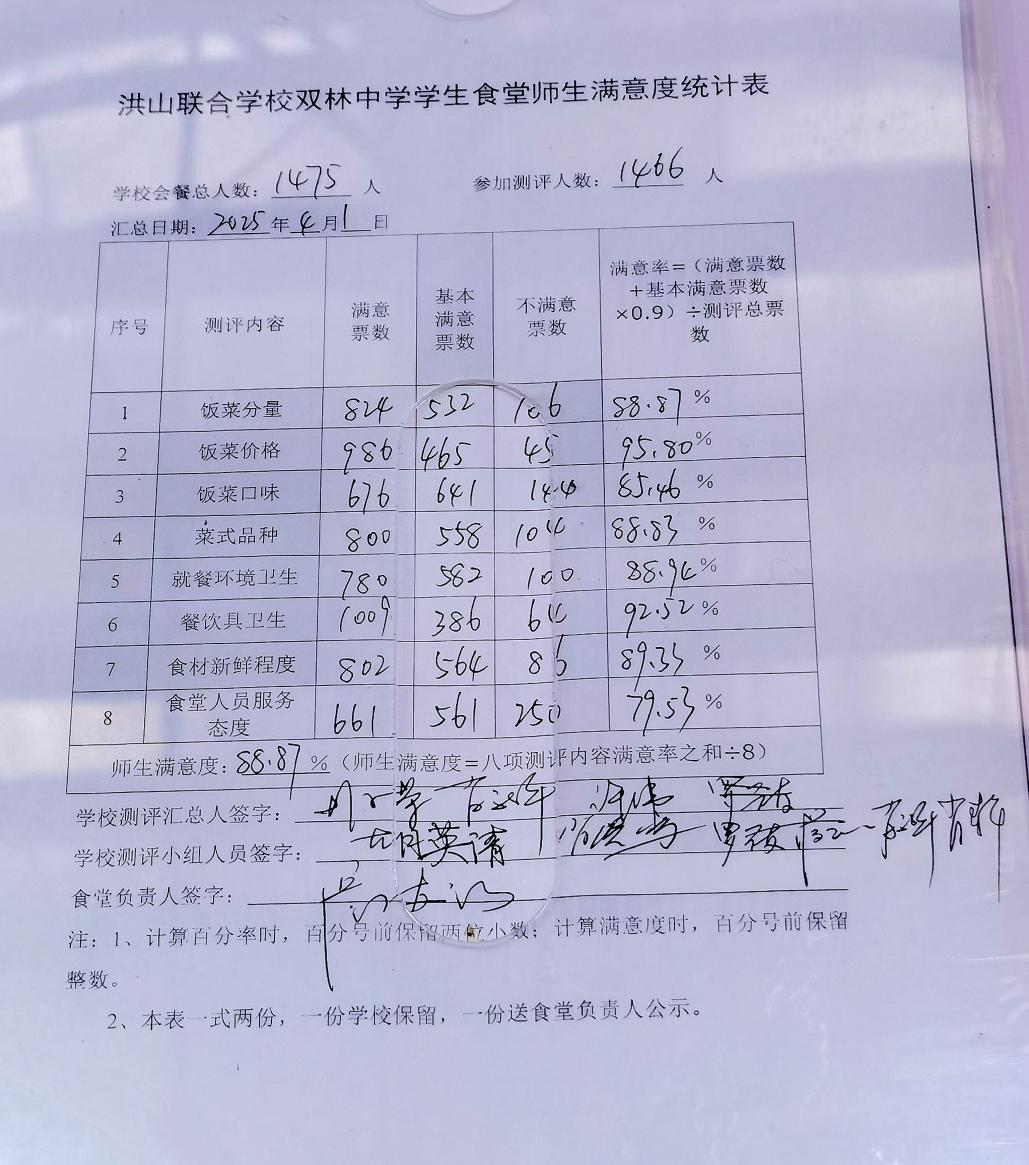 洪山联合学校双林中学学生食堂师生满意度统计表
学校会餐总人数：1475 人 参加测评人数：1466 人
汇总日期：2025年4月1日
序号 测评内容 满意票数 基本满意票数 不满意票数 满意率=（满意票数+基本满意票数×0.9）÷测评总票数
1 饭菜分量 824 532 106 88.87 %
2 饭菜价格 986 465 45 95.80%
3 饭菜口味 676 641 144 85.46 %
4 菜式品种 800 558 104 88.83 %
5 就餐环境卫生 780 582 100 88.94%
6 餐饮具卫生 1009 386 64 92.52 %
7 食材新鲜程度 802 564 86 89.35 %
8 食堂人员服务态度 661 561 250 79.53 %
师生满意度：88.87 %（师生满意度=八项测评内容满意率之和÷8）
学校测评汇总人签字：
学校测评小组人员签字：
食堂负责人签字：
注：1、计算百分率时，百分号前保留两位小数；计算满意度时，百分号前保留
整数。
2、本表一式两份，一份学校保留，一份送食堂负责人公示。